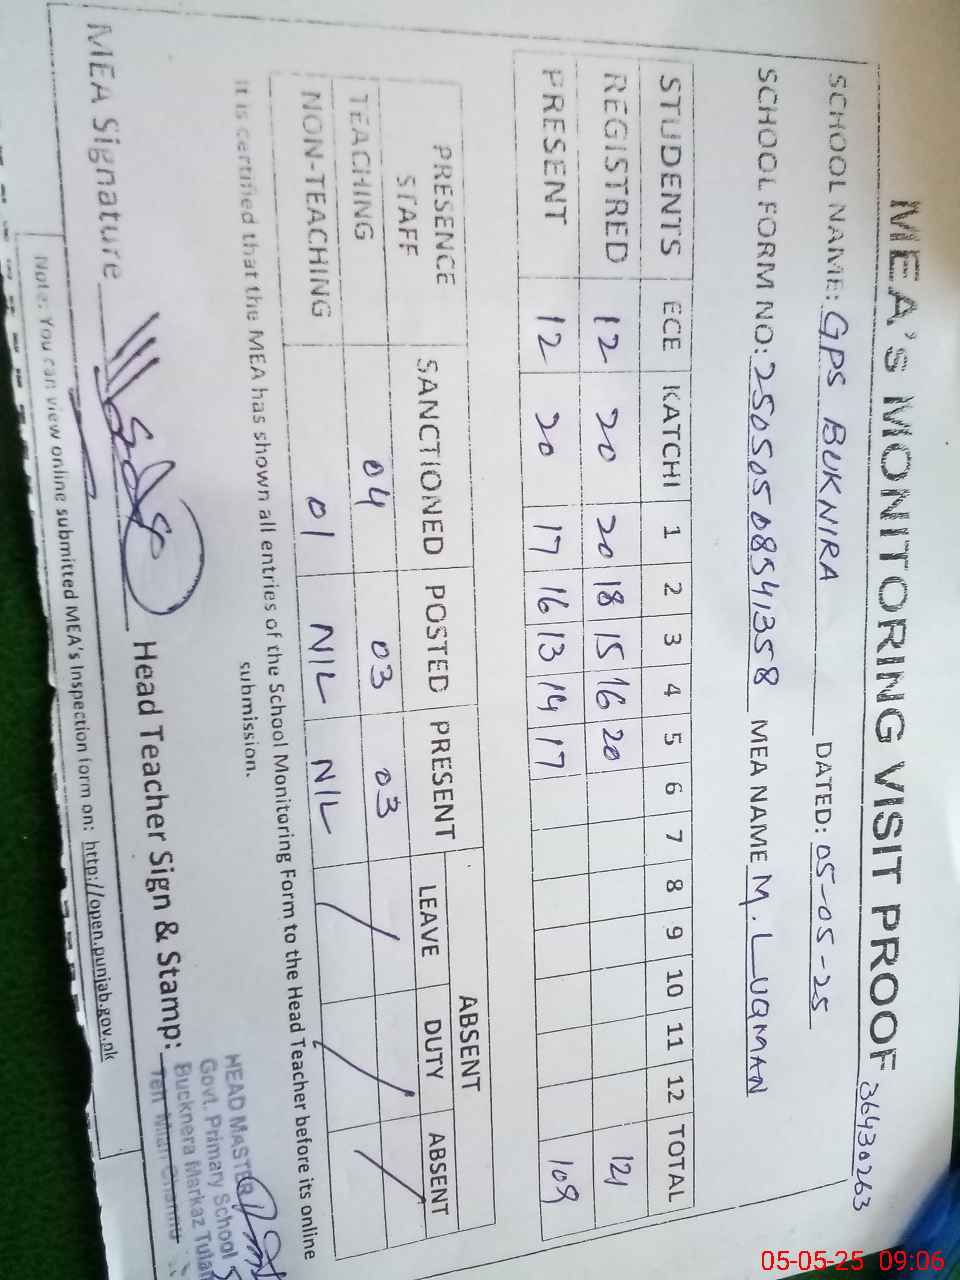 MEA's MONITORING VISIT PROOF 36430263
SCHOOL NAME: GPS BUKNIRA DATED: 05-05-25
SCHOOL FORM NO: 25050508541358 MEA NAME M. LUQMAN
STUDENTS ECE KATCHI 1 2 3 4 5 6 7 8 9 10 11 12 TOTAL
REGISTRED 12 20 20 18 15 16 20 121
PRESENT 12 20 17 16 13 14 17 109
PRESENCE STAFF SANCTIONED POSTED PRESENT ABSENT
LEAVE DUTY ABSENT
TEACHING 04 03 03
NON-TEACHING 01 NIL NIL
It is certified that the MEA has shown all entries of the School Monitoring Form to the Head Teacher before its online
submission.
MEA Signature Head Teacher Sign & Stamp:
HEAD MASTER
Govt. Primary School
Bucknera Markaz
Teh Mian Channu
Note: You can view online submitted MEA's Inspection form on: http://open.punjab.gov.pk
05-05-25 09:06